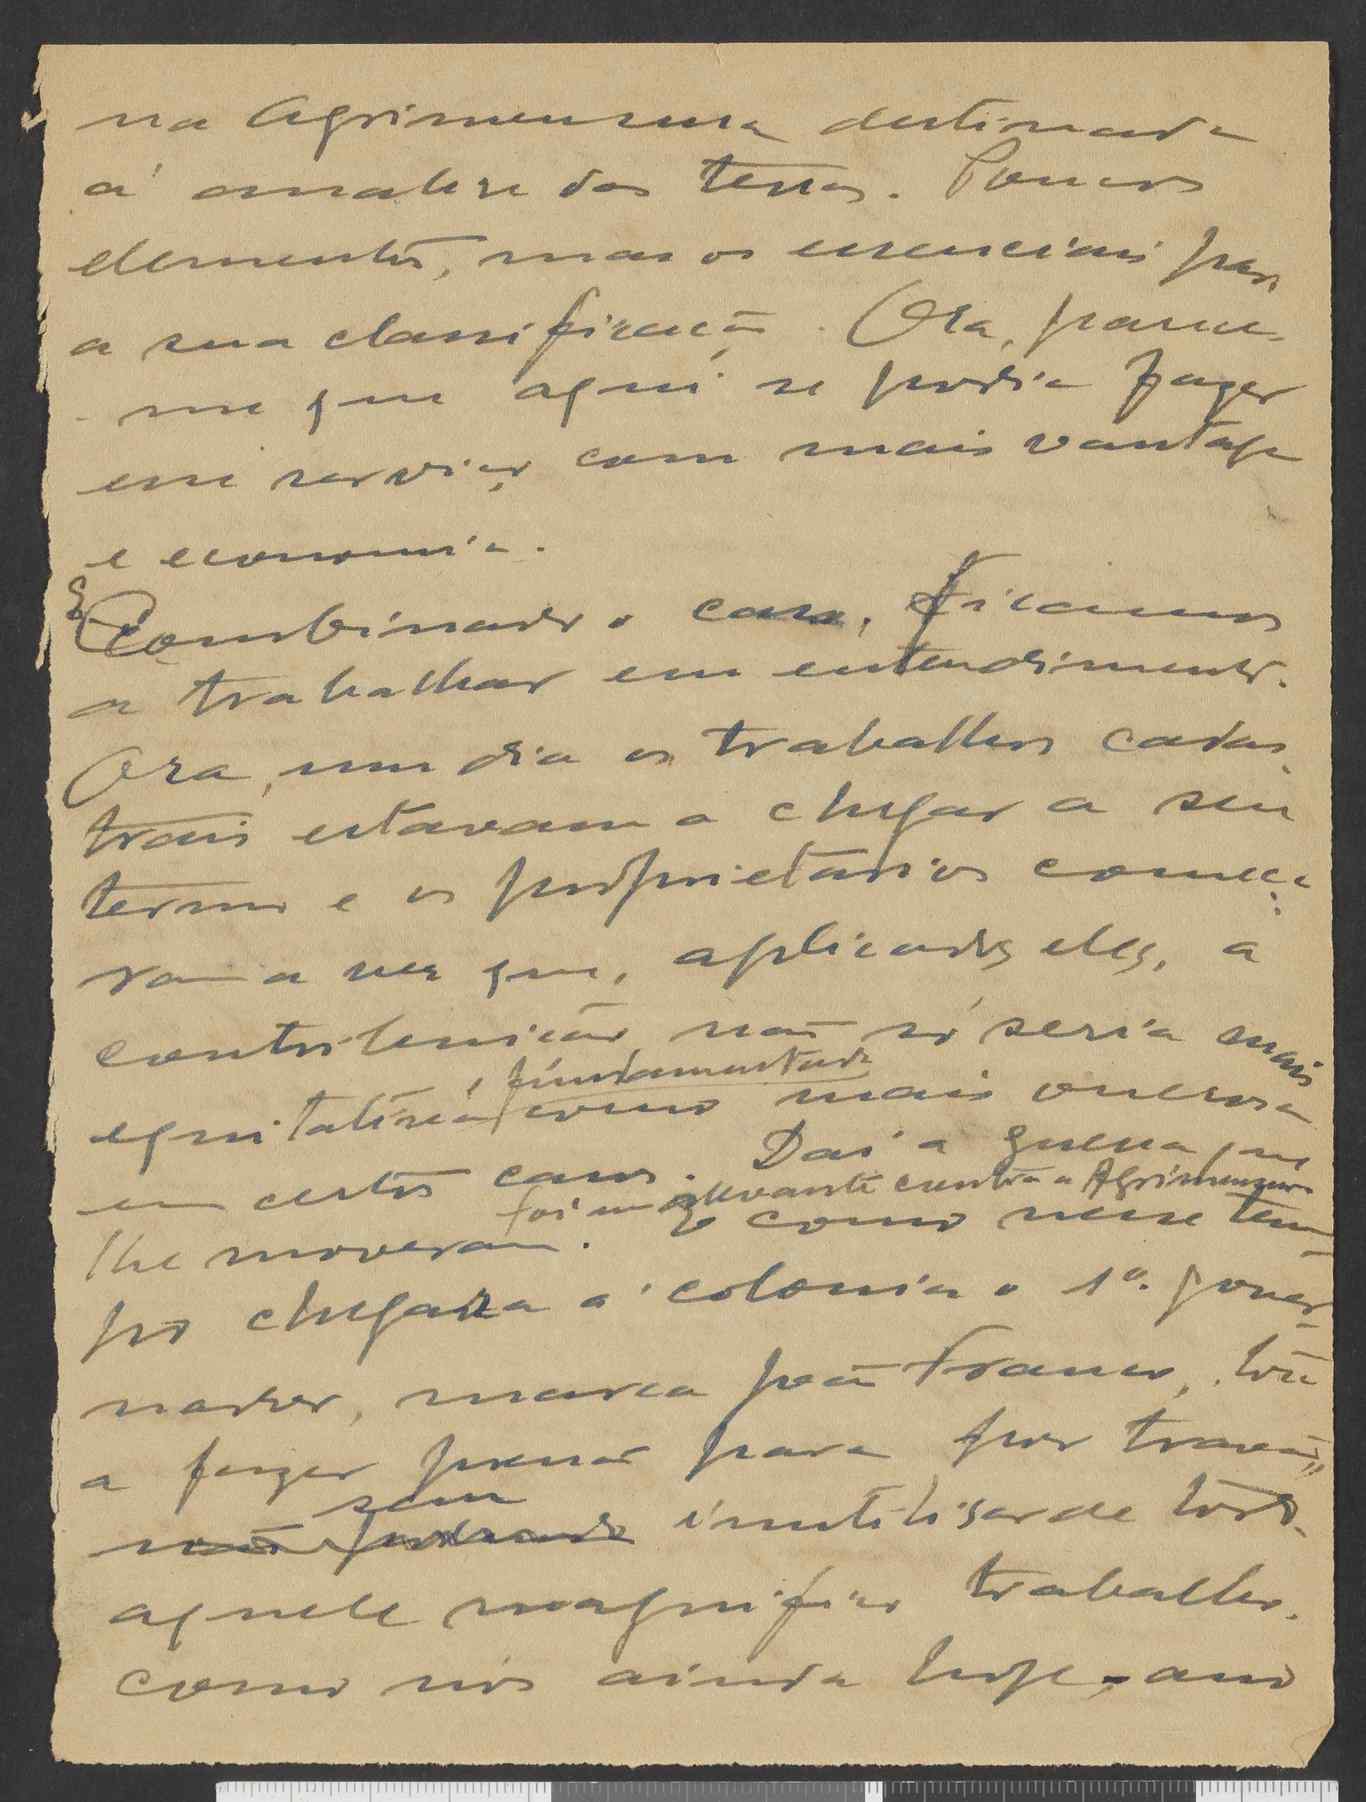 na Agrimensura destinada
á analise das terras. Poucos
elementos, mas os essenciais para
a sua classificação. Ora, parece-
-me que aqui se podia fazer
esse serviço, com mais vantage
e economia.
E Combinado o caso, ficamos
a trabalhar em entendimento.
Ora, um dia os trabalhos cadas-
trais estavam a chegar a seu
termo e os proprietarios come-
ram a ver que, aplicados eles, a
contribuição não só seria mais
equitativa, fundamentada como mais onerosa
em certos casos. Daí a guerra que
foi um levante contra a Agrimensura
lhe moveram. E como nesse tem-
po chegára á colonia o 1º. gover-
nador, marca João Franco,
a fazer pressão para por travão,
não podendo sem inutilisar de todo
aquele magnifico trabalho.
como nós ainda hoje, ano